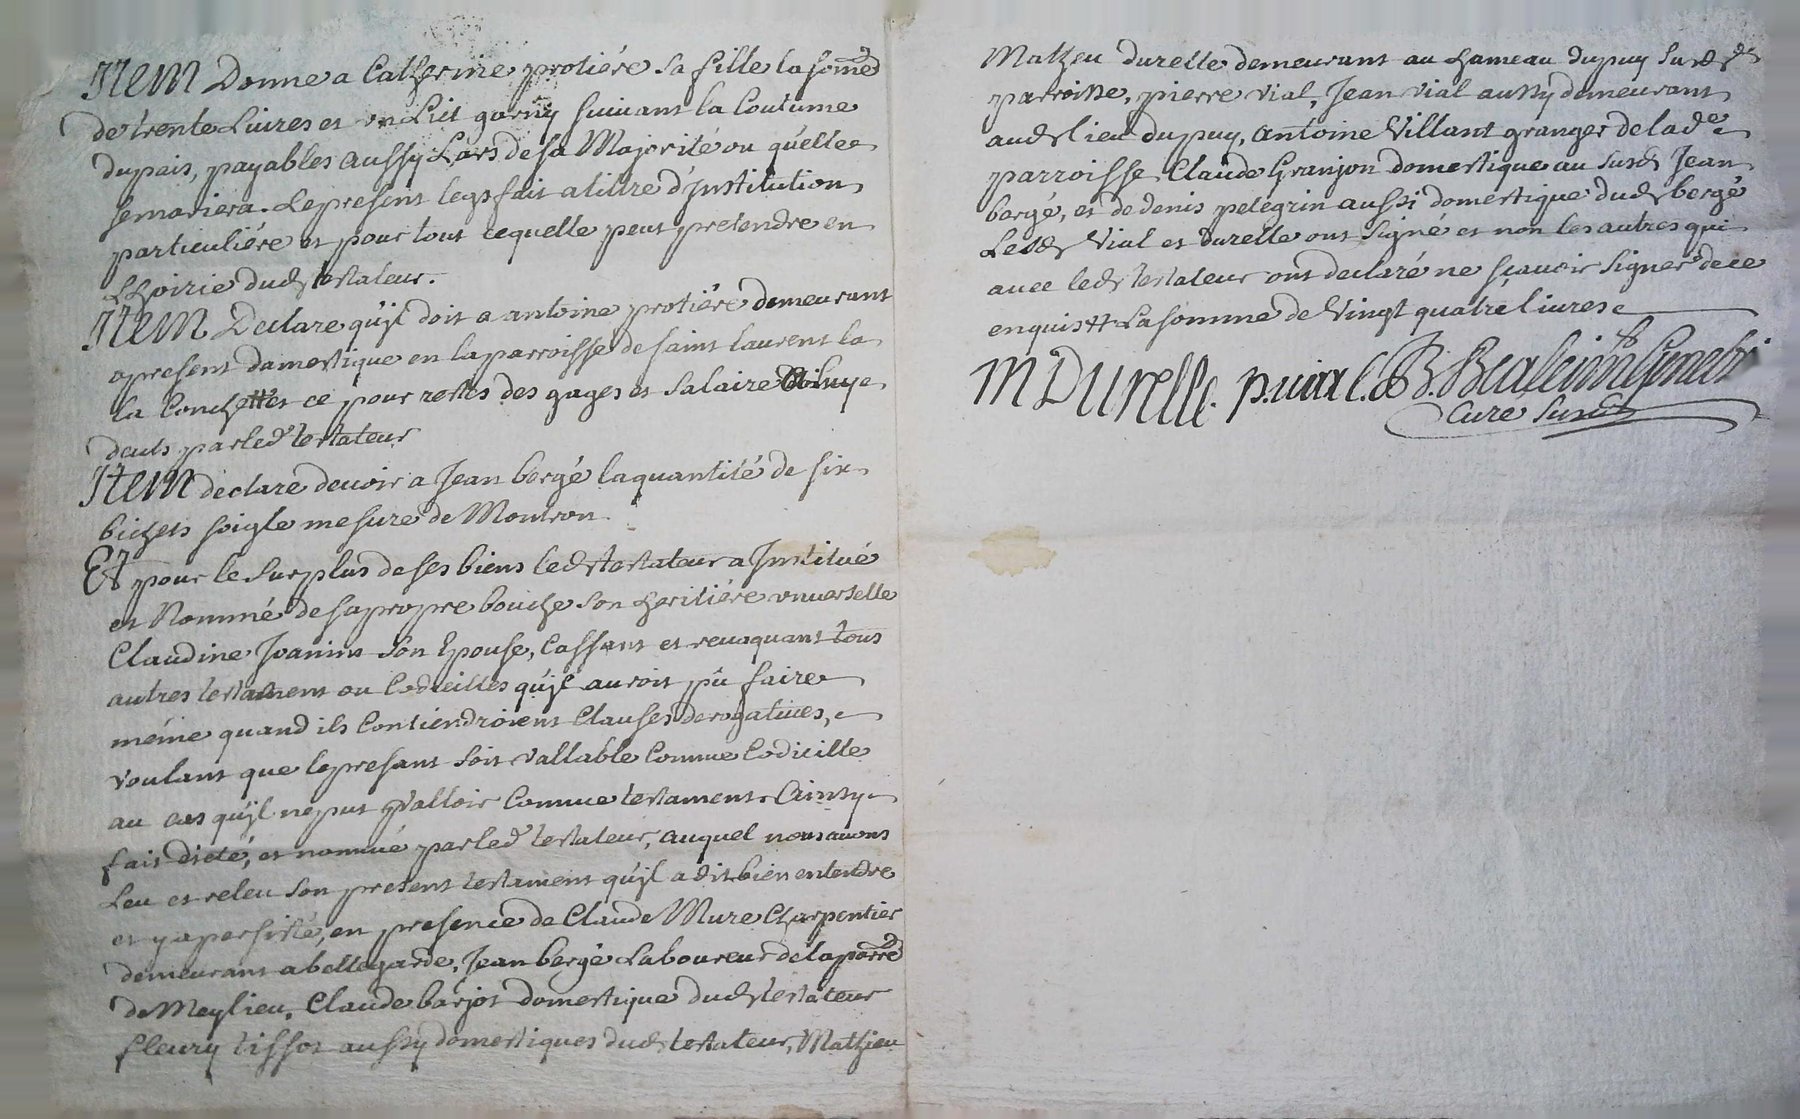 Item Donne a Catherine protiére sa fille la some
de trente Livres et un Lict garny suivant la Coutume
du pais, payables aussy Lors de sa Majorité ou qu'elle
se mariera. Le present legs fait a tiltre d'Institution
particuliére et pour tout ce quelle peut pretendre en
L'hoirie dud testateur.
Item Declare qu'jl doit a antoine protiére demeurant
a present domestique en la parroisse de saint laurent la
la Conche et ce pour restes des gages et salaire a luy
deuts par led testateur
Item declare devoir a Jean bergé la quantité de six
bichets soigle mesure de Montron
Et pour le surplus de ses biens led testateur a Institué
et Nommé de sa propre bouche son heritiére universelle
Claudine Joanin son Epouse, Cassant et revoquant tous
autres testament ou Codicilles qu'jl auroit pû faire
méme quand ils Contiendroient Clauses derogatives,
voulant que le presant soit vallable Comme Codicille
au cas qu'jl ne put valloir Comme testament. Ainsy
fait dicté, et nommé par led testateur, auquel nous avons
Leu et releu son present testament qu'jl a dit bien entendre
et y a persisté, en presence de Claude Mure Charpentier
demeurant a bellegarde, Jean bergé Laboureur de la parre
de Meylieu, Claude barjot domestique dud testateur
fleury tissot aussy domestiques dud testateur, Mathieu
Matheu durelle demeurant au hameau du puy susd
parroisse, pierre vial, Jean vial aussy demeurant
aud lieu du puy, Antoine Villant granger de lad
parroisse Claude Granjon domestique au susd Jean
bergé, et de denis pelegrin aussi domestique dud bergé
Lesd Vial et durelle ont signé et non les autres qui
avec led testateur ont declaré ne sçavoir signer de ce
enquis La somme de Vingt quatre livres
m Durelle. p. vial
Curé Susd